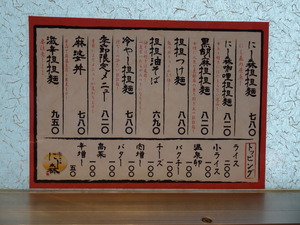 にし森担担麺 七八〇
にし森咖喱担担麺 八二〇
黒胡麻担担麺 八八〇
担担つけ麺 八八〇
担担油そば 六九〇
冷やし担担麺 七八〇
季節限定メニュー 八二〇
麻婆丼 七八〇
激辛担担麺 九五〇
トッピング
ライス 二〇〇
小ライス 一〇〇
温泉卵 一〇〇
パクチー 一〇〇
チーズ 一〇〇
肉増し 一〇〇
バター 一〇〇
高菜 一〇〇
辛増し 五〇
にし森